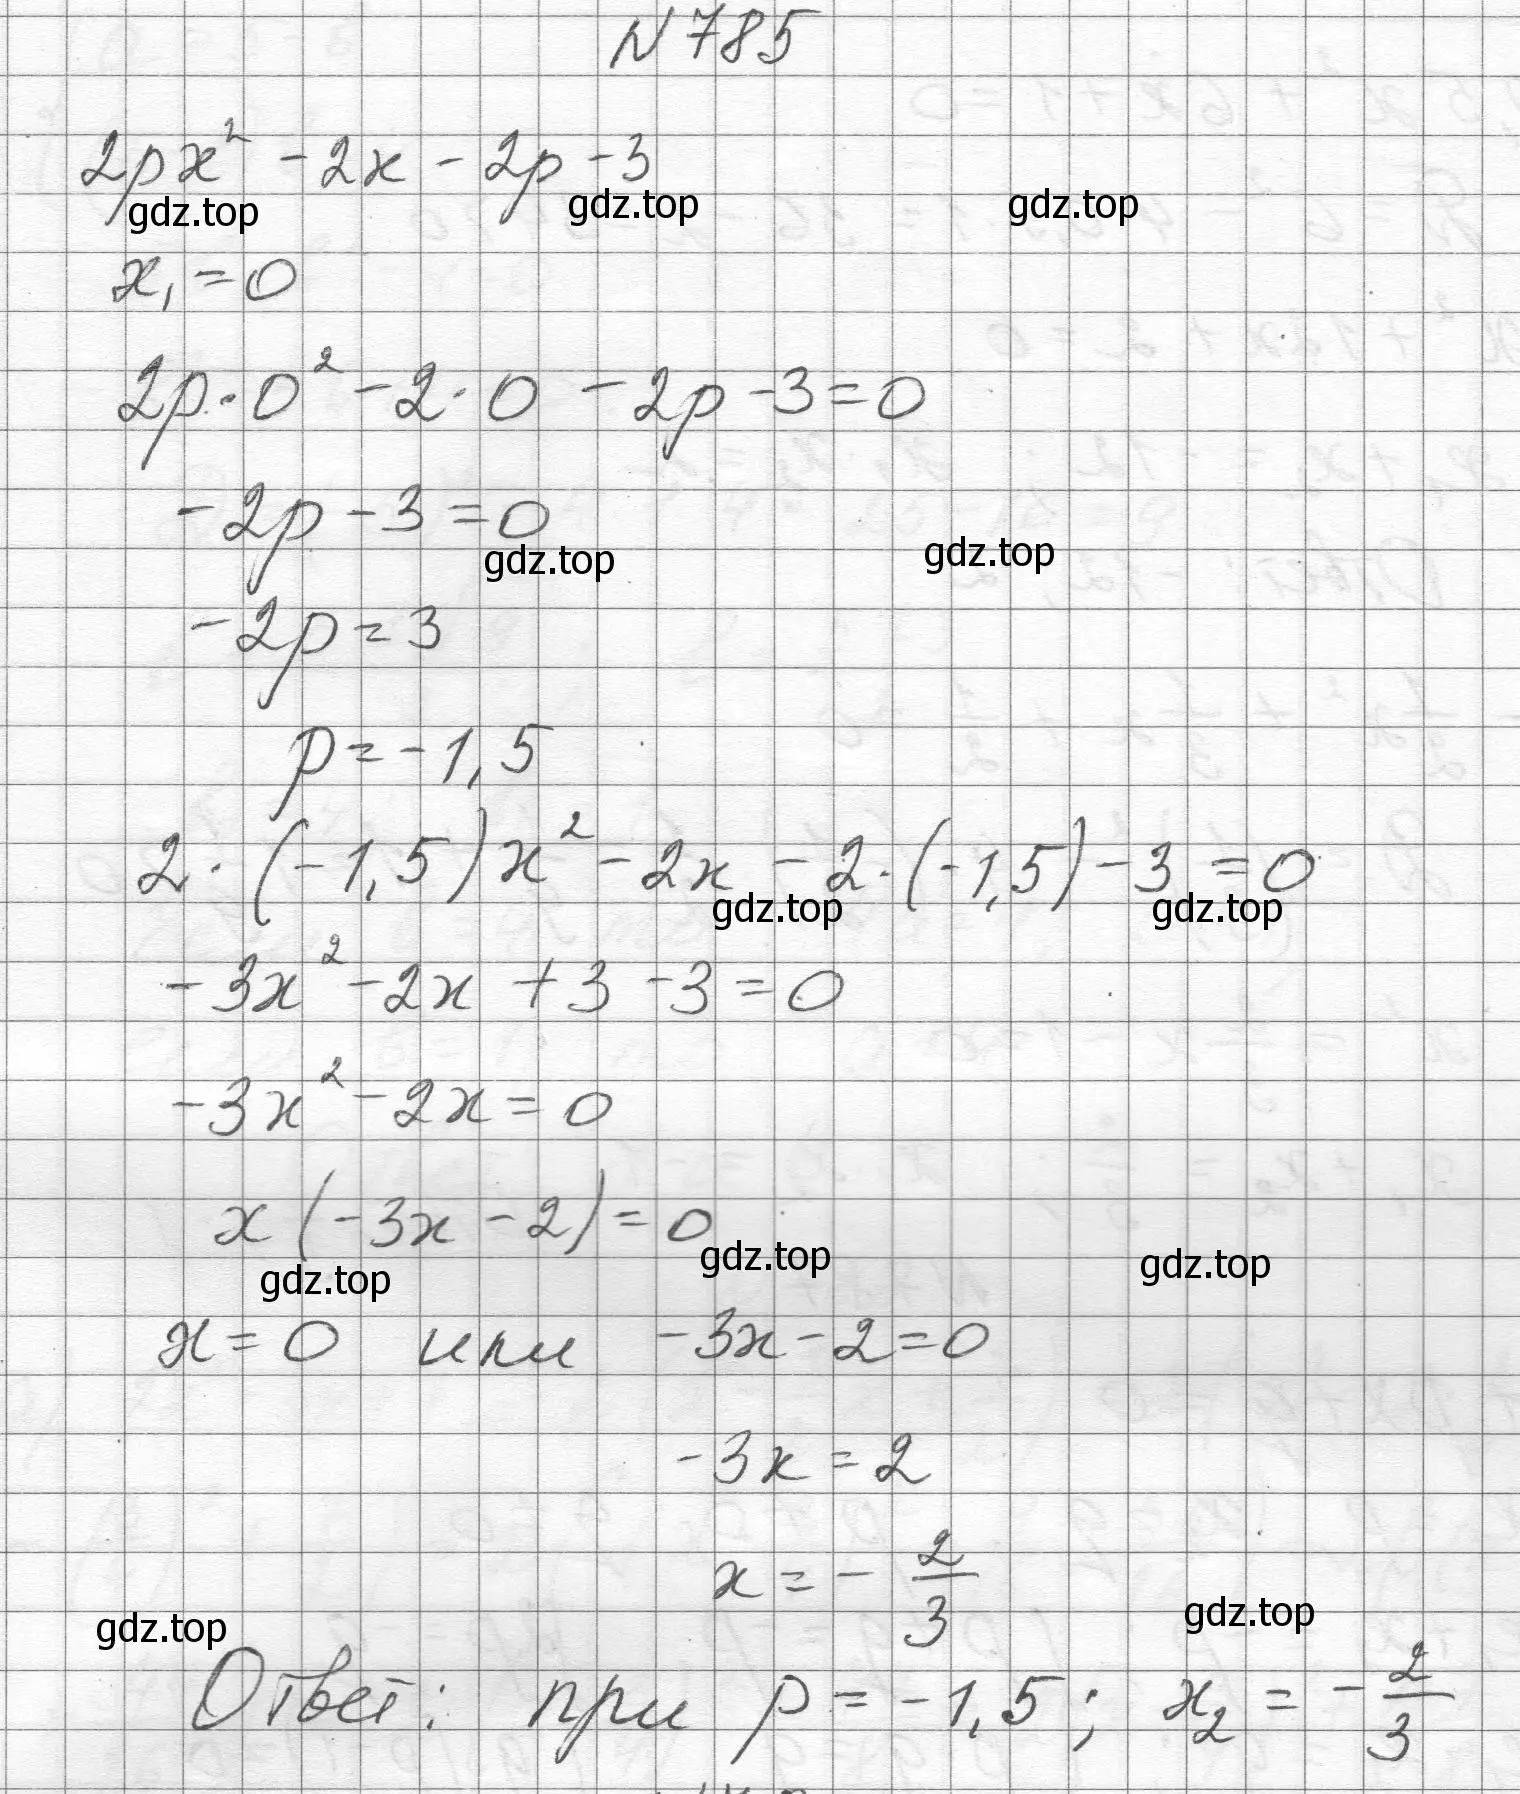 N 785
2px² - 2x - 2p - 3
gdz.top gdz.top gdz.top
x₁ = 0
2p · 0² - 2 · 0 - 2p - 3 = 0
-2p - 3 = 0
gdz.top gdz.top
-2p = 3
p = -1,5
2 · (-1,5)x² - 2x - 2 · (-1,5) - 3 = 0
gdz.top gdz.top
-3x² - 2x + 3 - 3 = 0
-3x² - 2x = 0
x(-3x - 2) = 0
gdz.top gdz.top gdz.top
x = 0 или -3x - 2 = 0
-3x = 2
x = - 2/3
gdz.top gdz.top
Ответ: при p = -1,5; x₂ = - 2/3